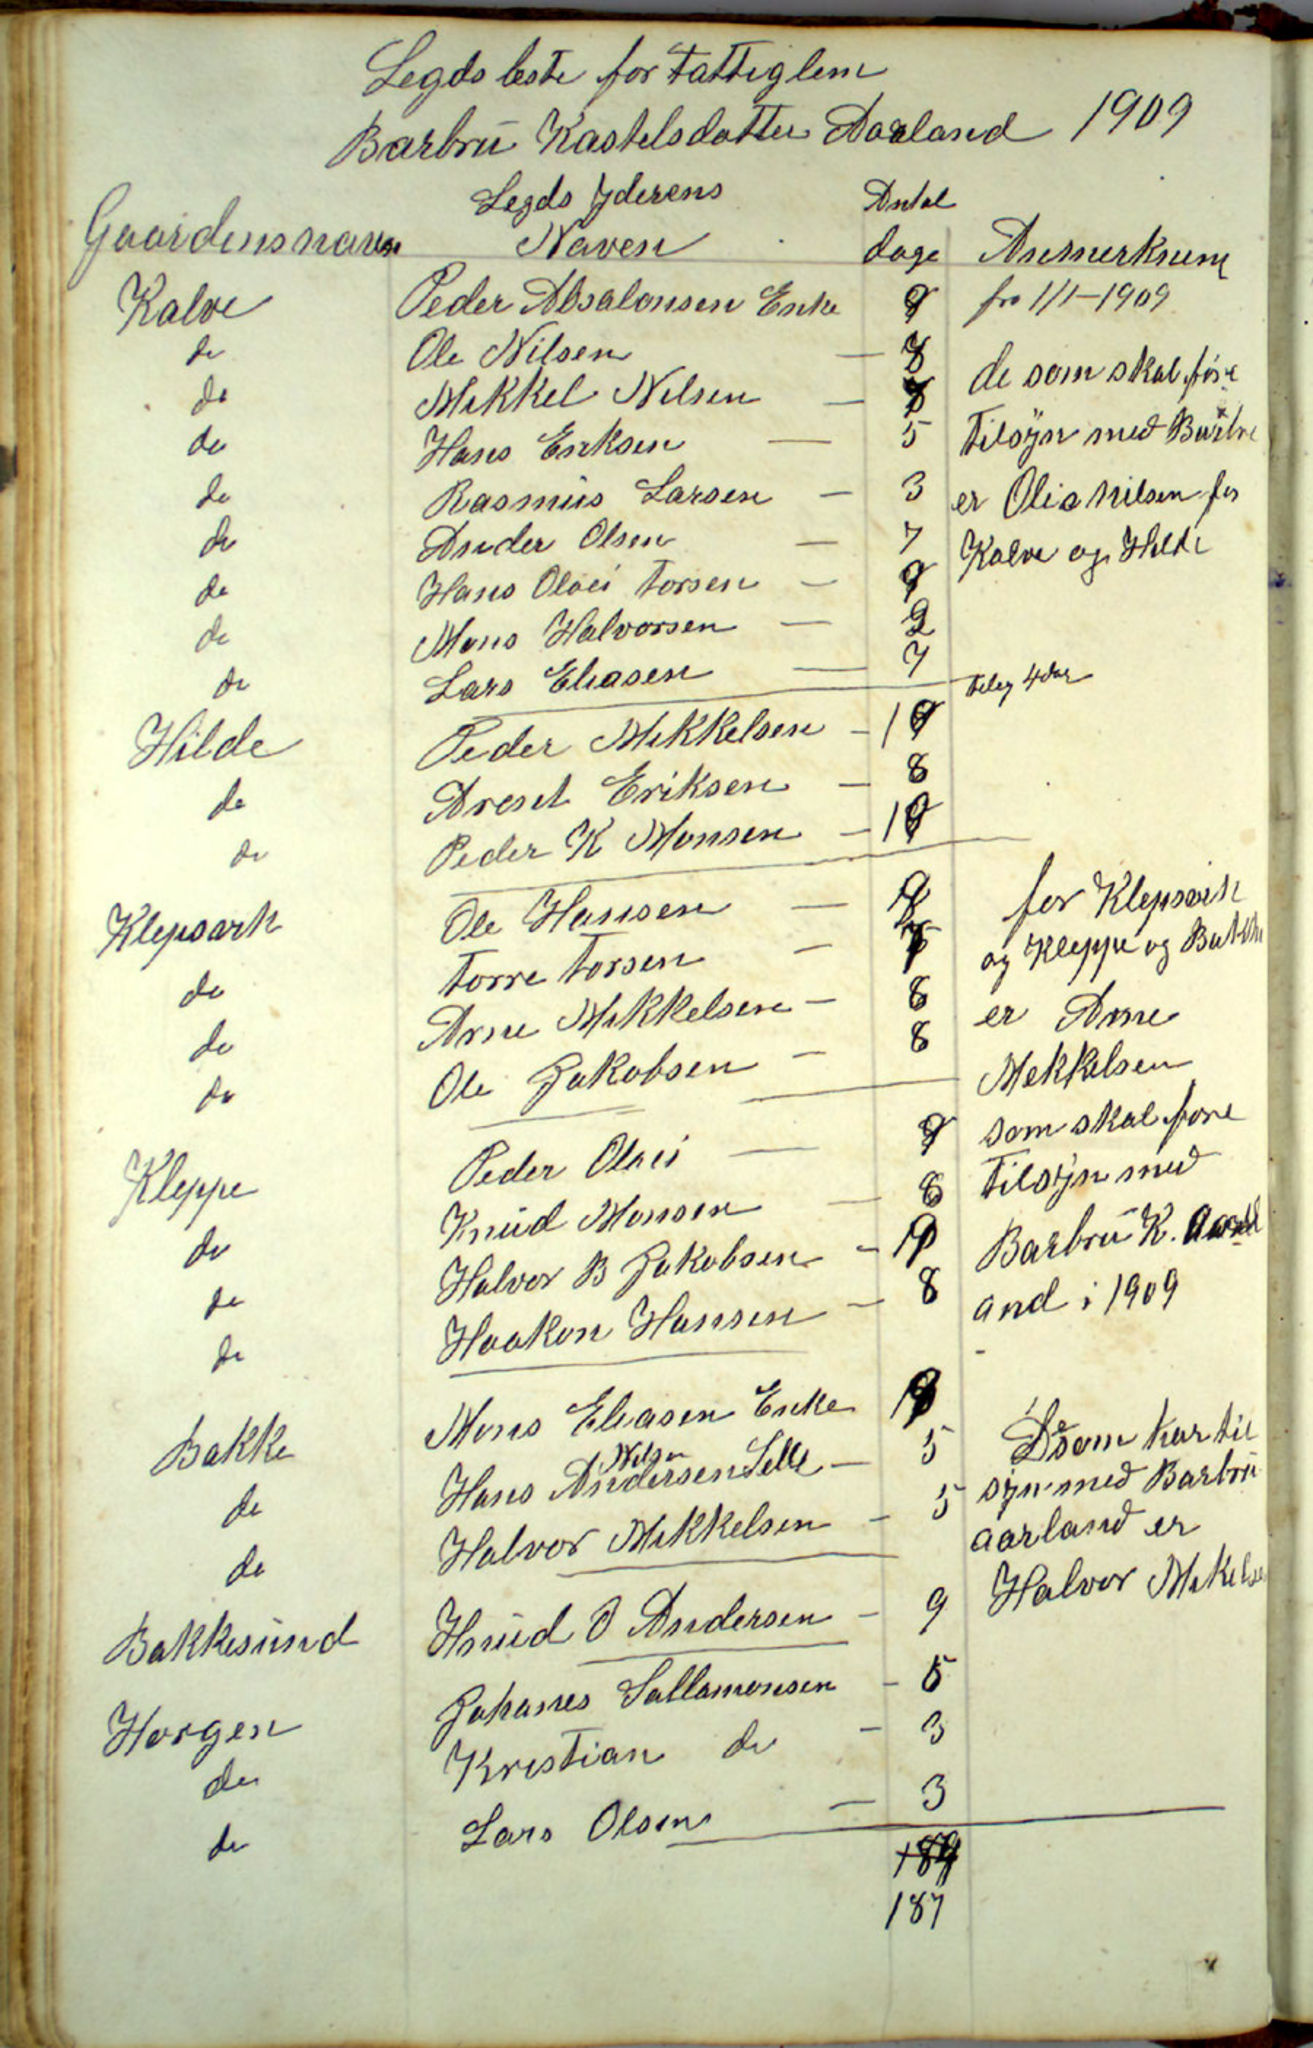 Legds leste for Fattiglem
Barbrü Kastelsdatter Aarland 1909
Gaardensnavn Legds Yderens Naven Antal dage Anmerknin
Kalve Peder Absalonsen Enke fra 1/1-1909
do Ole Nilsen —
do Mikkel Nilsen — de som skal føre
do Hans Eriksen — 5 Tilsÿn med
do Rasmüs Larsen — 3 er Nilsen for
do Ander Olsen — 7 Kalve og Hilde
do Hans Olai Torsen —
do Mons Halvorsen — 2
do Lars Eliasen — 7
Hilde Peder Mikkelsen —
do Arent Eriksen — 8
do Peder K Monsen —
Klepsvik Ole Hansen — for Klepsvik
do Torre Torsen — og Kleppe og
do Arne Mikkelsen — 8 er Arne
do Ole Jakobsen — 8 Mekkelsen
Kleppe Peder Olai — som skal føre
do Knüd Monsen — Tilsÿn med
do Halvor B Jakobsen — Barbrü K.
do Haakon Hansen — 8 and i 1909
Bakke Mons Eliasen Enke
do Hans Andersen Selle — 5 som har til
do Halvor Mikkelsen — 5 sÿn med Barbrü
aarland er
Bakkesünd Knüd O Andersen — 9 Halvor
Horgen Johanes Sallamonsen —
do Kristian do — 3
do Lars Olsen — 3
187